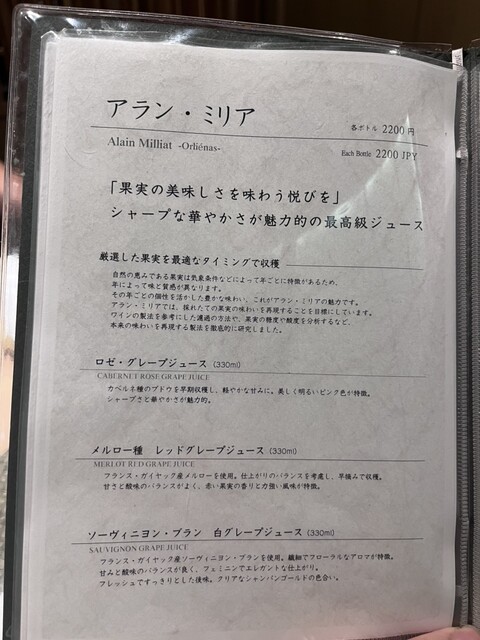 アラン・ミリア
各ボトル 2200 円
Alain Milliat -Orliénas-
Each Bottle 2200 JPY
「果実の美味しさを味わう悦びを」
シャープな華やかさが魅力的の最高級ジュース
厳選した果実を最適なタイミングで収穫
自然の恵みである果実は気象条件などによって年ごとに特徴があるため、
年によって味と質感が異なります。
その年ごとの個性を活かした豊かな味わい、これがアラン・ミリアの魅力です。
アラン・ミリアでは、採れたての果実の味わいを再現することを目標にしています。
ワインの製法を参考にした濾過の方法や、果実の糖度や酸度を分析するなど、
本来の味わいを再現する製法を徹底的に研究しました。
ロゼ・グレープジュース (330ml)
CABERNET ROSE GRAPE JUICE
カベルネ種のブドウを早期収穫し、軽やかな甘みに。美しく明るいピンク色が特徴。
シャープさと華やかさが魅力的。
メルロー種 レッドグレープジュース (330ml)
MERLOT RED GRAPE JUICE
フランス・ガイヤック産メルローを使用。仕上がりのバランスを考慮し、早摘みで収穫。
甘さと酸味のバランスがよく、赤い果実の香りと力強い風味が特徴。
ソーヴィニヨン・ブラン 白グレープジュース (330ml)
SAUVIGNON GRAPE JUICE
フランス・ガイヤック産ソーヴィニヨン・ブランを使用。繊細でフローラルなアロマが特徴。
甘みと酸味のバランスが良く、フェミニンでエレガントな仕上がり。
フレッシュですっきりとした後味。クリアなシャンパンゴールドの色合い。